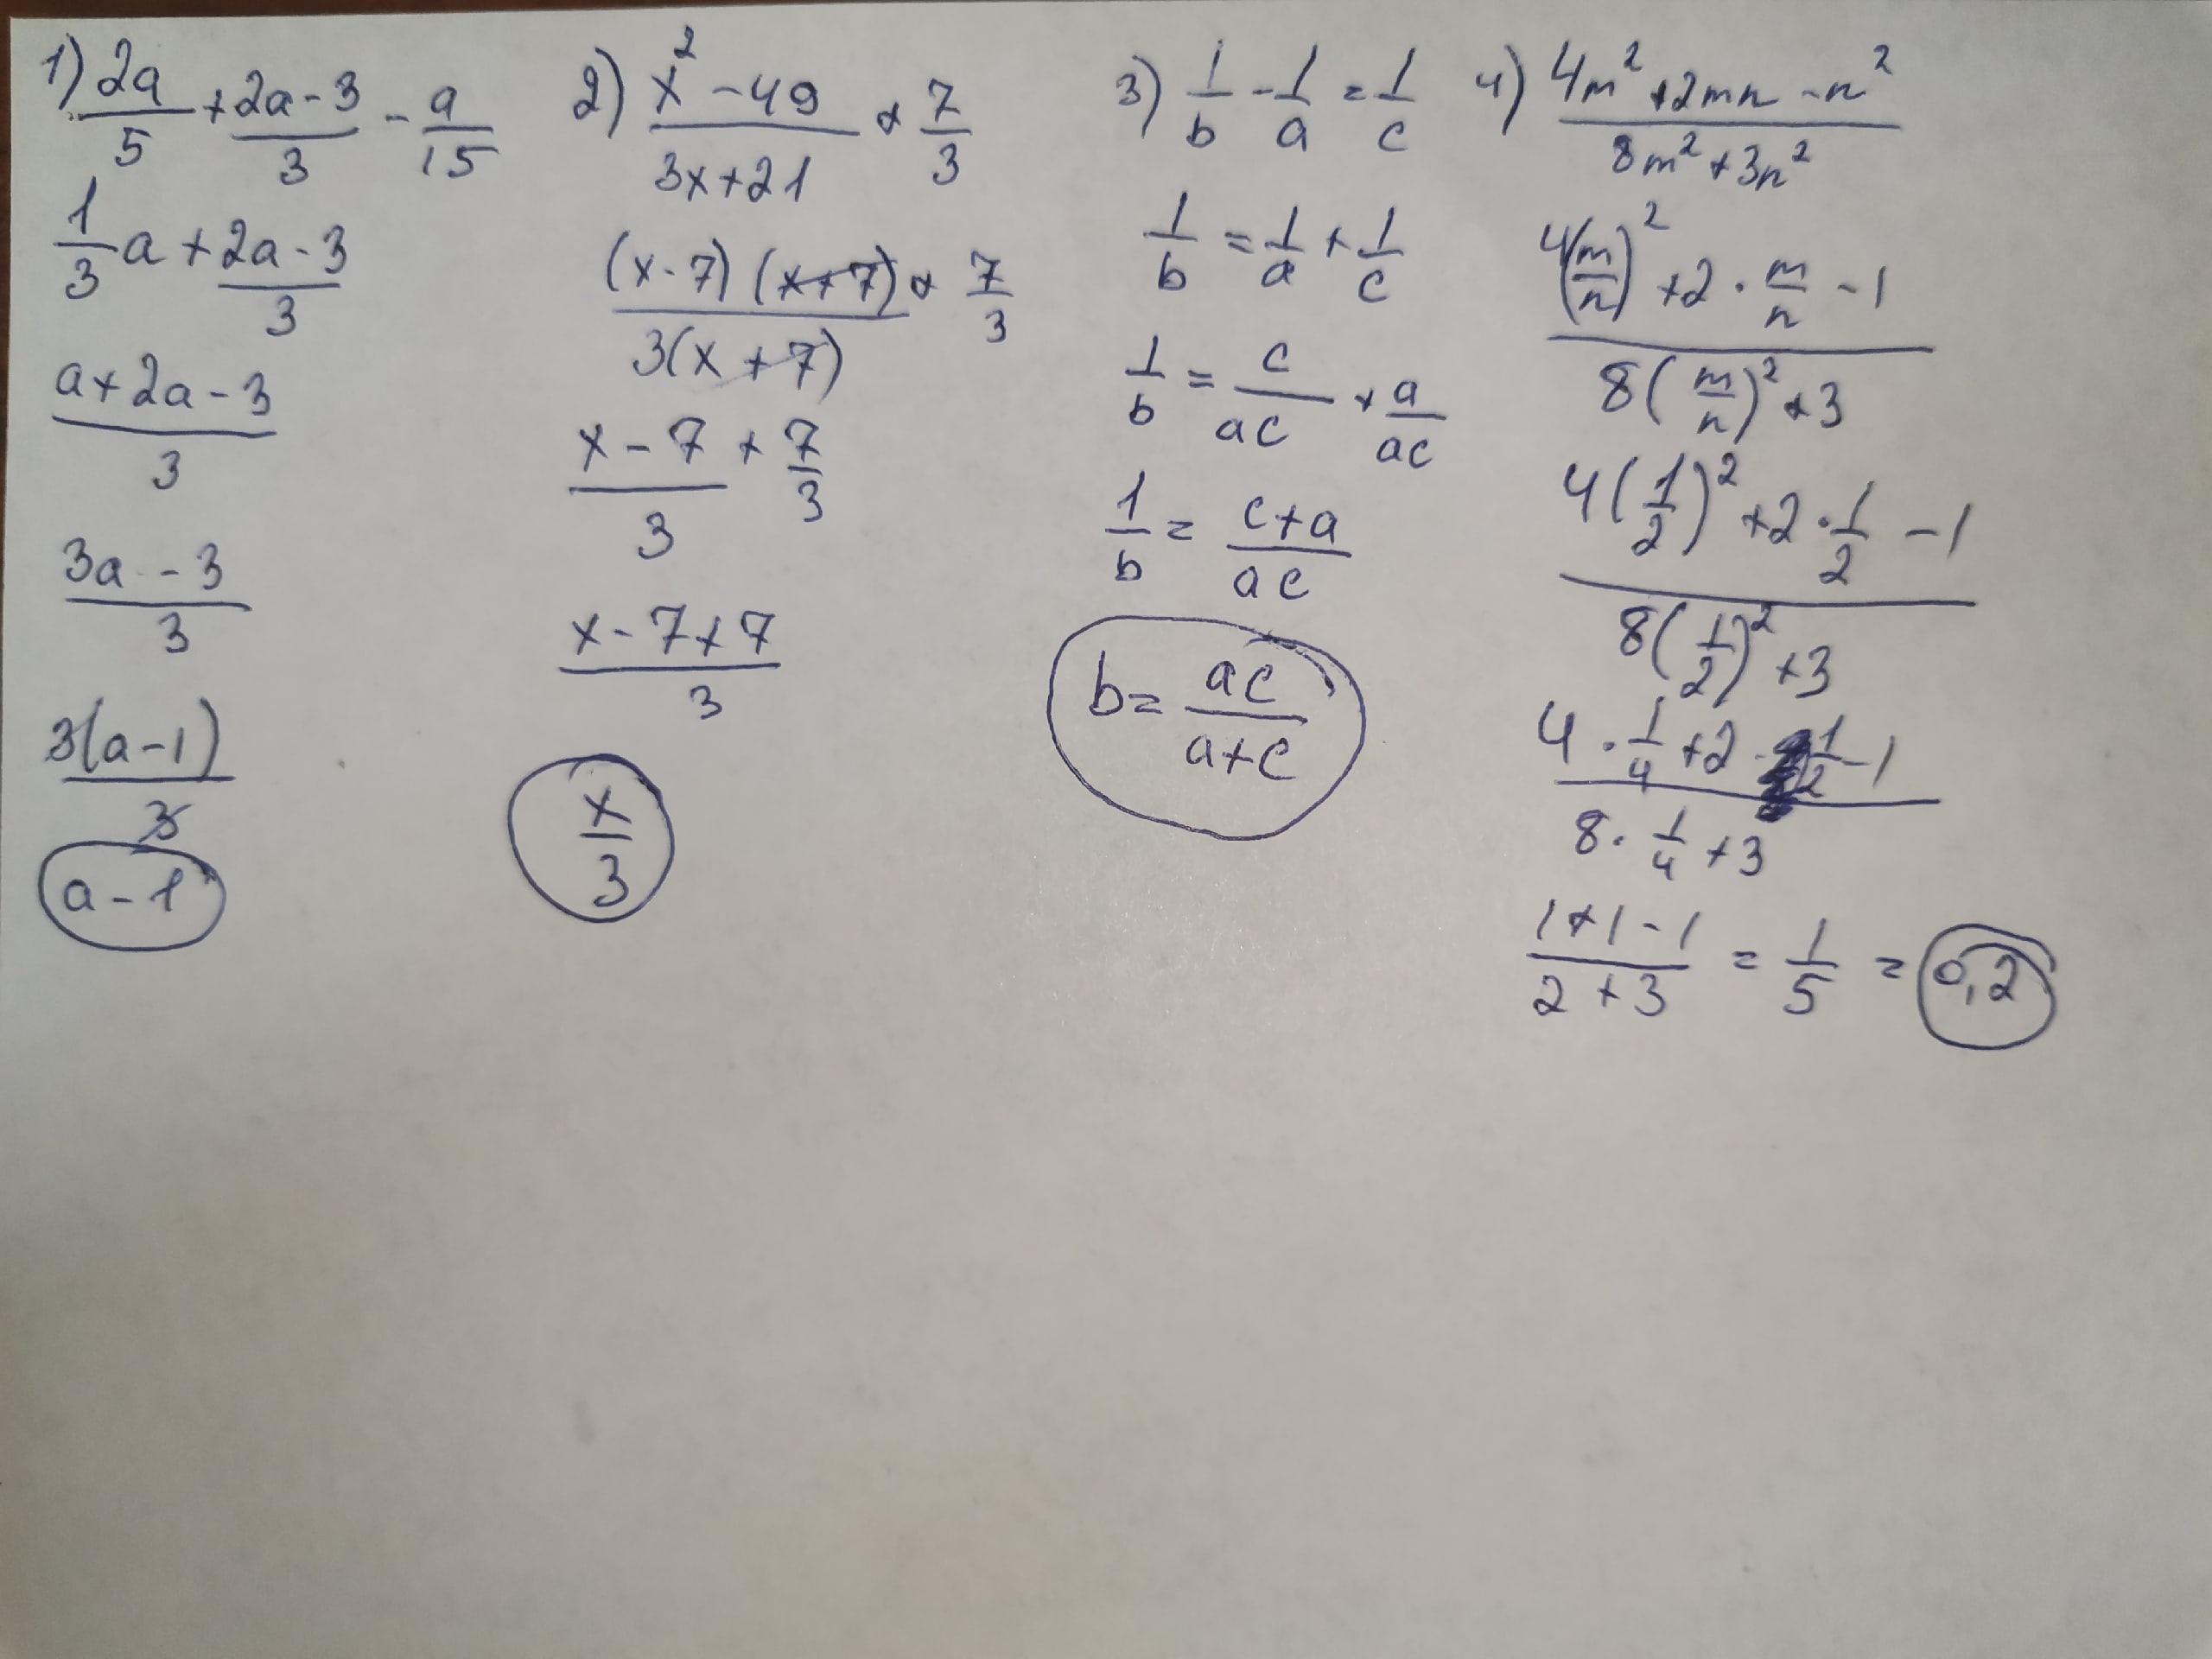 1) 2a/5 + (2a-3)/3 - a/15
1/3 a + (2a-3)/3
(a+2a-3)/3
(3a-3)/3
3(a-1)/3
a-1
2) (x²-49)/(3x+21) + 7/3
(x-7)(x+7)/3(x+7) + 7/3
(x-7)/3 + 7/3
(x-7+7)/3
x/3
3) 1/b - 1/a = 1/c
1/b = 1/a + 1/c
1/b = c/ac + a/ac
1/b = (c+a)/ac
b = ac/(a+c)
4) (4m²+2mn-n²)/(8m²+3n²)
(4(m/n)²+2·m/n-1)/(8(m/n)²+3)
(4(1/2)²+2·1/2-1)/(8(1/2)²+3)
(4·1/4+2·1/2-1)/(8·1/4+3)
(1+1-1)/(2+3) = 1/5 = 0,2